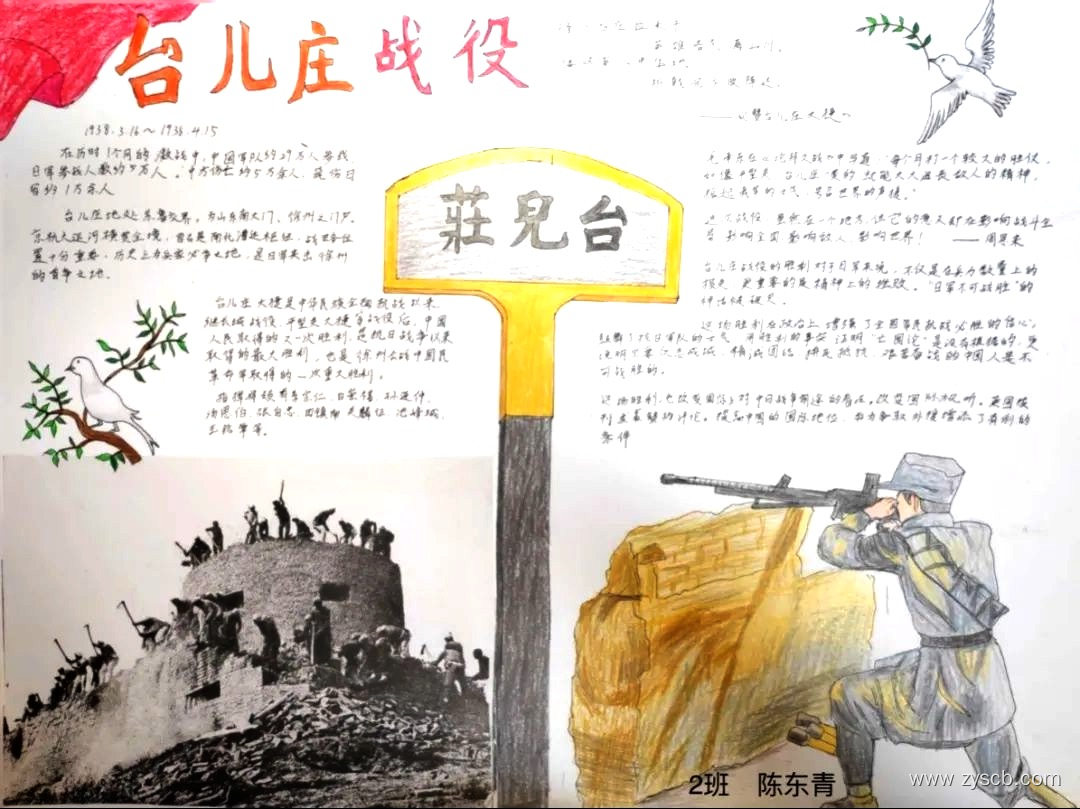 台儿庄战役
——《赞台儿庄大捷》
1938.3.16～1938.4.15
在历时1个月的激战中，中国军队约29万人参战，
日军参战人数约5万人。中方伤亡约5万余人，毙伤日
军约1万余人
台儿庄地处苏鲁交界，为山东南大门、徐州之门户。
京杭大运河横贯全境，
置十分重要，历史上为兵家必争之地，是日军夹击徐州
的首争之地。
台儿庄大捷是中华民族全面抗战以来，
继长城战役、平型关大捷等战役后，中国
人民取得的又一次胜利，是抗日战争以来
取得的最大胜利，也是徐州会战中国民
革命军取得的一次重大胜利。
指挥将领有李宗仁、白崇禧、孙连仲、
汤恩伯、张自忠、田镇南、关麟征、池峰城、
王铭章等。
莊兒台
毛泽东在《论持久战》中写道，“每个月打一个较大的胜仗，
如像平型关 台儿庄一类的 就能大大沮丧敌人的精神，
振起我军的士气，号召世界的声援。”
这次战役，虽然在一个地方，但它的意义却在影响战斗全
局 影响全国 影响敌人，影响世界！ ——周恩来
台儿庄战役的胜利对于日军来说，不仅是在兵力数量上的
损失，更重要的是精神上的挫败。“日军不可战胜”的
神话被破灭。
这场胜利在政治上，增强了全国军民抗战必胜的信心，
用胜利的事实 证明“亡国论”是没有根据的，更
可战胜的。
这场胜利，也改变国际对中日战争前途的看法。改变国际视听。英国报
提高中国的国际地位，
条件
2班 陈东青
www.zyscb.com